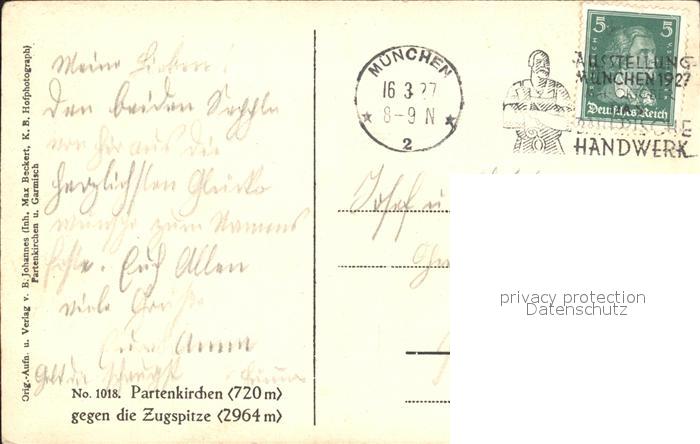 Meine Lieben!
Den beiden Seppln
von hier aus die
herzlichsten Glück
wünsche zum Namens
feste. Euch Allen
viele Grüße
Eure Anna
No. 1018. Partenkirchen (720 m)
gegen die Zugspitze (2964 m)
Orig.-Aufn. u. Verlag v. B. Johannes (Inh. Max Beckert, K. B. Hofphotograph)
Partenkirchen u. Garmisch
MÜNCHEN
16 3 27
8-9 N
2
5 5
Deutsches Reich
AUSSTELLUNG
MÜNCHEN 1927
HANDWERK
Josef u.
privacy protection
Datenschutz